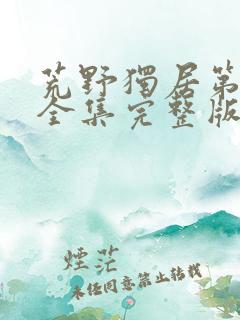 荒野獨居第
全集完整版
煙茫
未经同意禁止转载